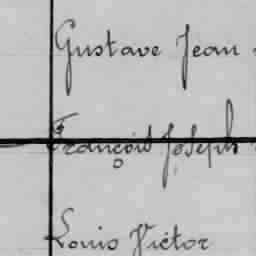 Gustave Jean
François Joseph
Louis Victor